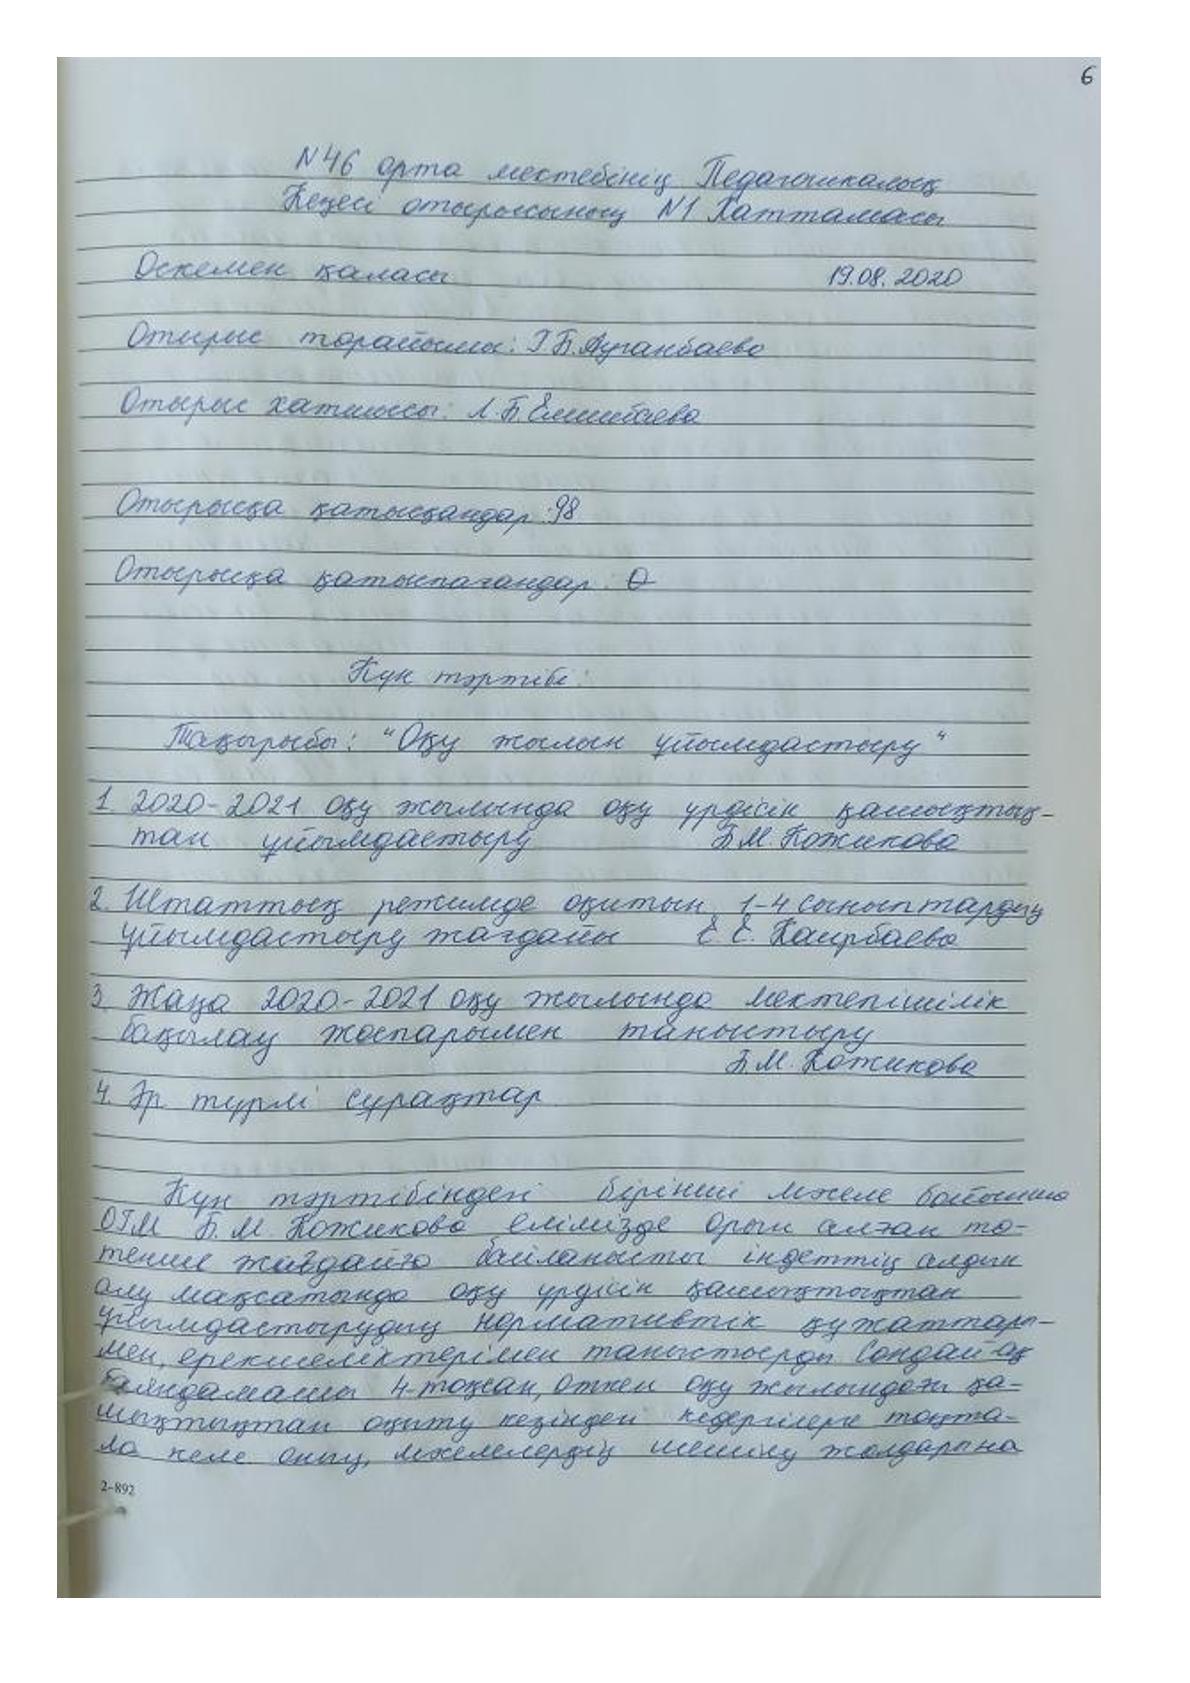 6
N46 орта мектебінің Педагогикалық
Кеңесі отырысының N1 Хаттамасы
Өскемен қаласы 19.08.2020
Отырыс төрайымы: Г.Б.Ауганбаева
Отырыс хатшысы: Л.Б.Елишбаева
Отырысқа қатысқандар: 98
Отырысқа қатыспағандар: 0
Күн тәртібі:
Тақырыбы: "Оқу жылын ұйымдастыру"
1. 2020-2021 оқу жылында оқу үрдісін қашықтық-
тан ұйымдастыру Б.М. Кожикова
2. Штаттық режимде оқитын 1-4 сыныптардың
ұйымдастыру жағдайы Е.Е. Каирбаева
3. Жаңа 2020-2021 оқу жылында мектепішілік
бақылау жоспарымен таныстыру
Б.М. Кожикова
4. Әр түрлі сұрақтар
Күн тәртібіндегі бірінші мәселе бойынша
ОІМ Б.М. Кожикова елімізде орын алған тө-
тенше жағдайға байланысты індеттің алдын
алу мақсатында оқу үрдісін қашықтықтан
ұйымдастырудың нормативтік құжаттары-
мен, ерекшеліктерімен таныстырды Сондай-ақ
баяндамашы 4-тоқсан, өткен оқу жылындағы қа-
шықтықтан оқыту кезіндегі кедергілерге тоқта-
ла келе оның, мәселелердің шешілу жолдарына
2-892